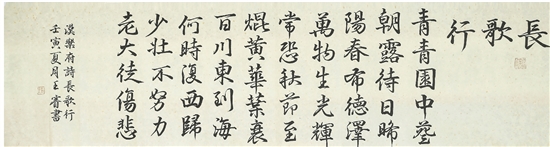 長歌行
青青園中葵
朝露待日晞
陽春布德澤
萬物生光輝
常恐秋節至
焜黃華葉衰
百川東到海
何時復西歸
少壯不努力
老大徒傷悲
漢樂府詩長歌行
壬寅夏月王書